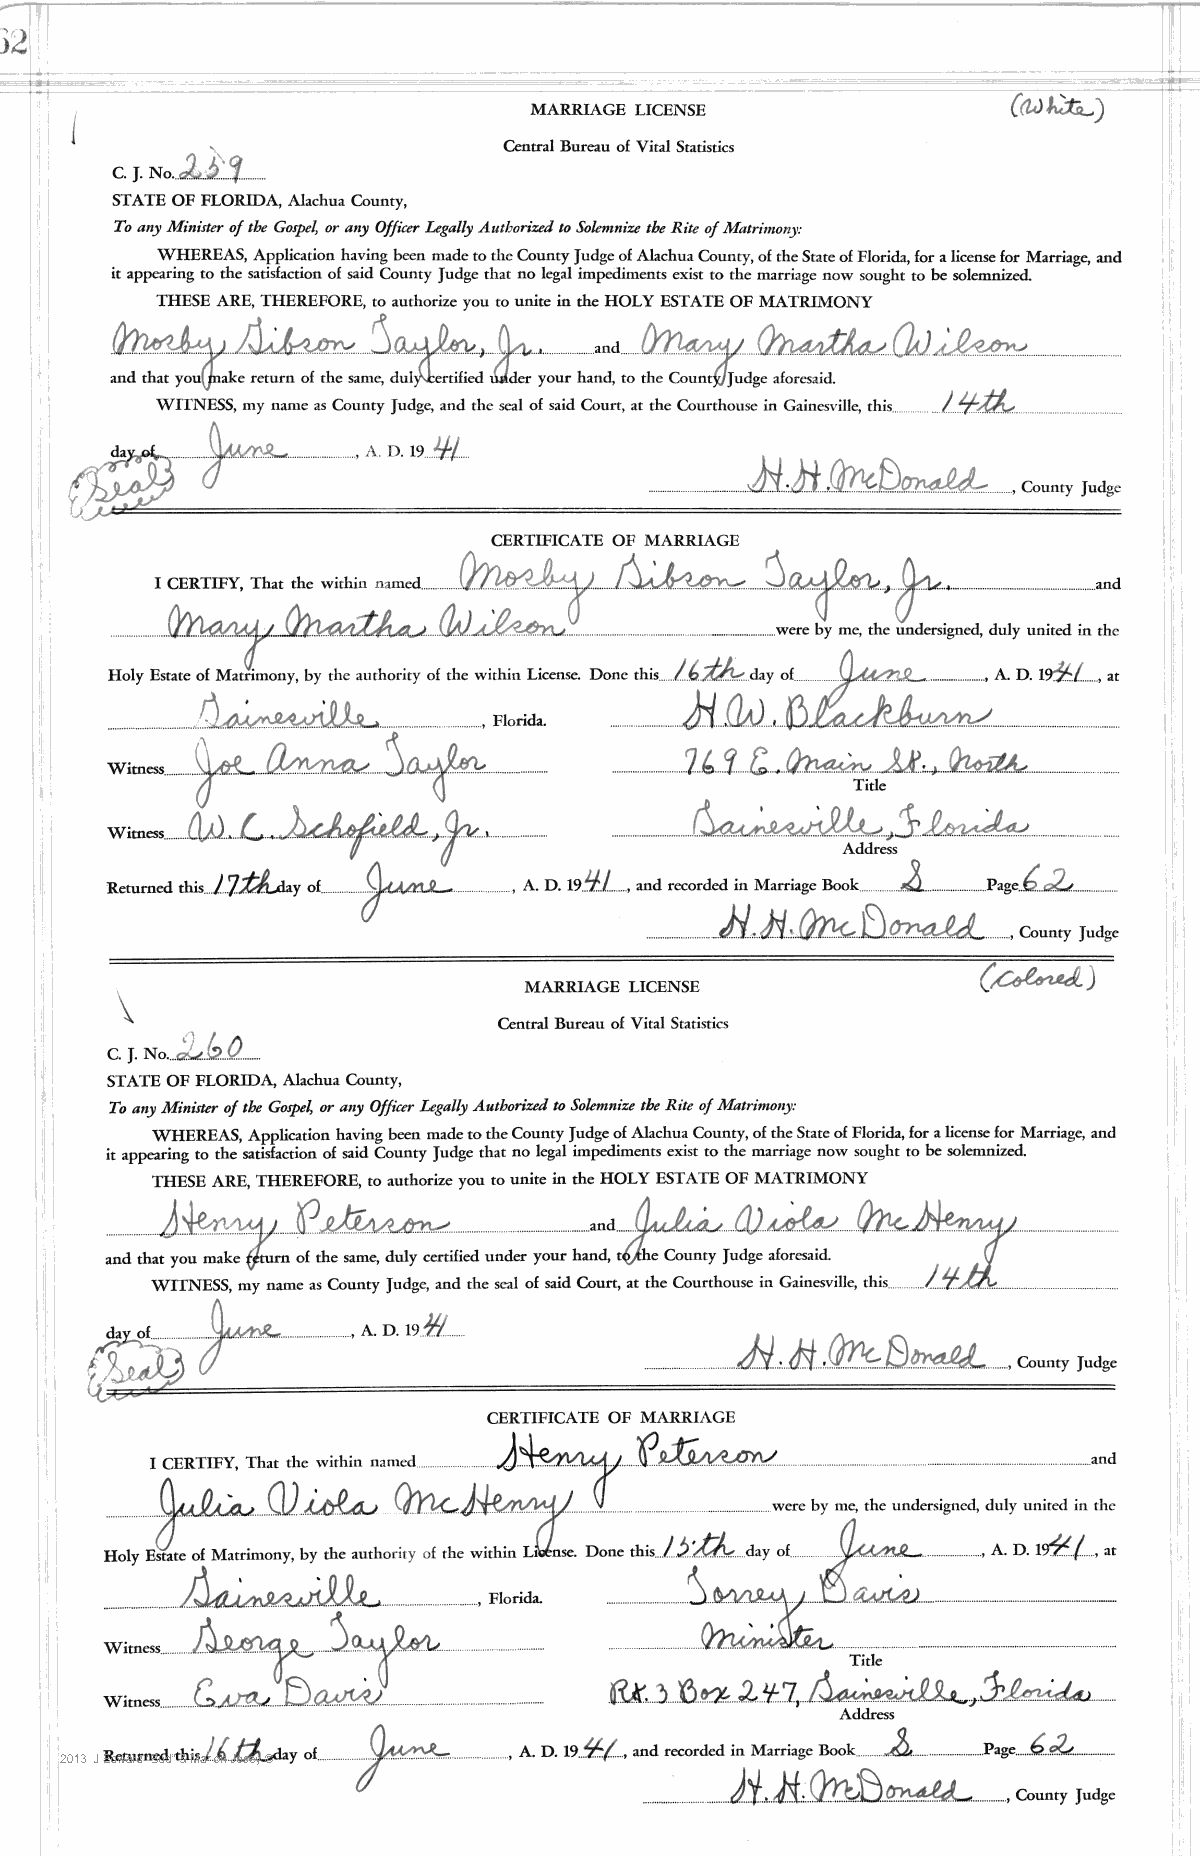 62
MARRIAGE LICENSE (White)
Central Bureau of Vital Statistics
C. J. No. 259
STATE OF FLORIDA, Alachua County,
To any Minister of the Gospel, or any Officer Legally Authorized to Solemnize the Rite of Matrimony:
WHEREAS, Application having been made to the County Judge of Alachua County, of the State of Florida, for a license for Marriage, and
it appearing to the satisfaction of said County Judge that no legal impediments exist to the marriage now sought to be solemnized.
THESE ARE, THEREFORE, to authorize you to unite in the HOLY ESTATE OF MATRIMONY
Mosby Gibson Taylor, Jr. and Mary Martha Wilson
and that you make return of the same, duly certified under your hand, to the County Judge aforesaid.
WITNESS, my name as County Judge, and the seal of said Court, at the Courthouse in Gainesville, this 14th
day of June, A. D. 1941
Seal H. H. McDonald, County Judge
CERTIFICATE OF MARRIAGE
I CERTIFY, That the within named Mosby Gibson Taylor, Jr. and
Mary Martha Wilson were by me, the undersigned, duly united in the
Holy Estate of Matrimony, by the authority of the within License. Done this 16th day of June, A. D. 1941, at
Gainesville, Florida. H. W. Blackburn
Witness Joe Anna Taylor 769 E. Main St., North
Title
Witness W. C. Schofield, Jr. Gainesville, Florida
Address
Returned this 17th day of June, A. D. 1941, and recorded in Marriage Book S Page 62
H. H. McDonald, County Judge
MARRIAGE LICENSE (Colored)
Central Bureau of Vital Statistics
C. J. No. 260
STATE OF FLORIDA, Alachua County,
To any Minister of the Gospel, or any Officer Legally Authorized to Solemnize the Rite of Matrimony:
WHEREAS, Application having been made to the County Judge of Alachua County, of the State of Florida, for a license for Marriage, and
it appearing to the satisfaction of said County Judge that no legal impediments exist to the marriage now sought to be solemnized.
THESE ARE, THEREFORE, to authorize you to unite in the HOLY ESTATE OF MATRIMONY
Henry Peterson and Julia Viola McHenry
and that you make return of the same, duly certified under your hand, to the County Judge aforesaid.
WITNESS, my name as County Judge, and the seal of said Court, at the Courthouse in Gainesville, this 14th
day of June, A. D. 1941
Seal H. H. McDonald, County Judge
CERTIFICATE OF MARRIAGE
I CERTIFY, That the within named Henry Peterson and
Julia Viola McHenry were by me, the undersigned, duly united in the
Holy Estate of Matrimony, by the authority of the within License. Done this 15th day of June, A. D. 1941, at
Gainesville, Florida. Torrey Davis
Witness George Taylor Minister
Title
Witness Eva Davis Rt. 3 Box 247, Gainesville, Florida
Address
2013 J Returned this 16th day of June, A. D. 1941, and recorded in Marriage Book S Page 62
H. H. McDonald, County Judge